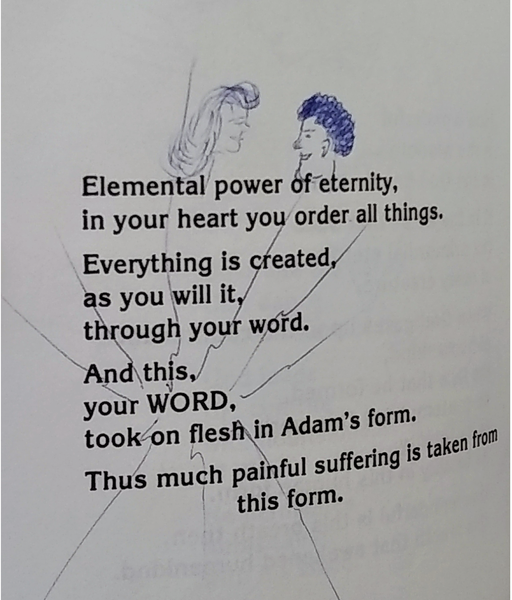 Elemental power of eternity,
in your heart you order all things.
Everything is created,
as you will it,
through your word.
And this,
your WORD,
took on flesh in Adam's form.
Thus much painful suffering is taken from
this form.